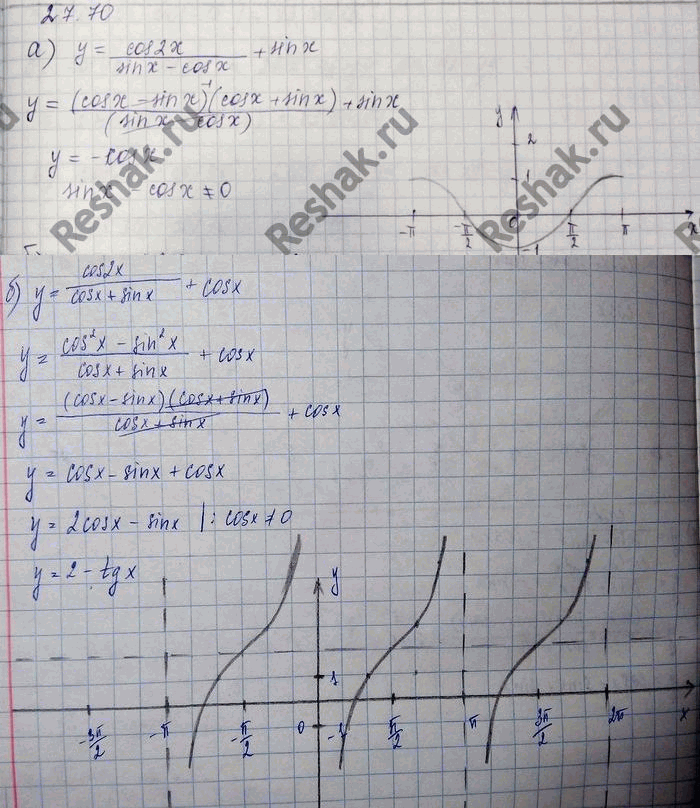 27.70
а) y = cos2x / (sinx - cosx) + sinx
y = (cosx - sinx)⁻¹(cosx + sinx) / (sinx - cosx) + sinx
y = -cosx
sinx cosx ≠ 0
y
2
1
-π -π/2 0 π/2 π x
-1
б) y = cos2x / (cosx + sinx) + cosx
y = (cos²x - sin²x) / (cosx + sinx) + cosx
y = (cosx - sinx)(cosx + sinx) / (cosx + sinx) + cosx
y = cosx - sinx + cosx
y = 2cosx - sinx | : cosx ≠ 0
y = 2 - tgx
y
1
-3π/2 -π -π/2 0 -1 π/2 π 3π/2 2π x
Reshak.ru
Reshak.ru
Reshak.ru